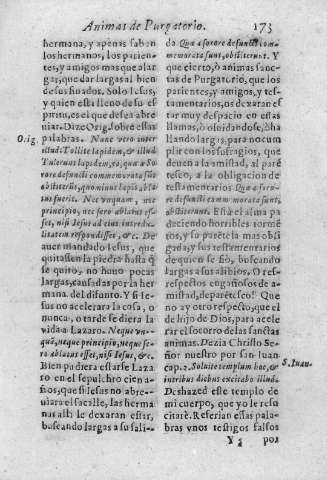 Animas de Purgatorio. 173
hermana, y apenas saben
los hermanos, los parientes,
y amigos mas que alargas,
que dar largas al bien
de sus finados. Solo Iesus,
y quien está lleno de su espiritu,
es el que desea abreuiar.
Dize Orig. sobre essas
palabras: Nunc vero inter
Orig.
illud: Tollite lapidem, & illud
Tulerunt lapidem, eo, quæ à Sorore
defuncti commemorata sunt
obstiterit, quominus lapis ablatus
fuerit. Nec vnquam, neque
principio, nec sero ablatus esset,
nisi Iesus ad eius incredulitatem
respondisset, & c. De
auer mandado Iesus, que
quitassen la piedra hasta q̃
se quitò, no huuo pocas
largas, causadas por la hermana
del difunto. Y si Iesus
no acelerara la cosa, o
nunca, o tarde se diera la
vida a Lazaro. Neque vnquã,
neque principio, neque sero
ablatus esset, nisi Iesus, & c.
Bien pudiera estarse Lazaro
en el sepulchro cien años,
que si Iesus no abreuiara
el sacalle, las hermanas
alli le dexaran estar,
buscando largas a su salida.
Quæ à sorore defuncti, commemorata
sunt, obstiterunt. Y
que cierto, ò animas sanctas
de Purgatorio, que los
parientes, y amigos, y testamentarios,
os dexaran estar
muy despacio en essas
llamas, ò oluidandose, ò hallando
largas, para no cumplir
con los sufragios, que
deuen a la amistad, al parẽtesco,
a la obligacion de
testamentarios Quæ à sorore
defuncti commemorata sunt,
obstiterunt. Està el alma padeciendo
horribles tormẽtos,
y su pariẽte la mas obligada,
y sus testementarios
de quien se fiò, buscando
largas a sus aliuios. O respectos
engañosos de amistad,
de parẽtesco! Que
no ay otro respecto, que el
de hijo de Dios, para acelerar
el socorro de las sanctas
animas. Dezia Christo Señor
nuestro por san Iuan
cap. 2. Soluite templum hoc, &
S. Iuan.
in tribus diebus excitabo illud.
Deshazed este templo de
mi cuerpo, que yo le resucitarè.
Referian essas palabras
vnos testigos falsos
Y 3 por